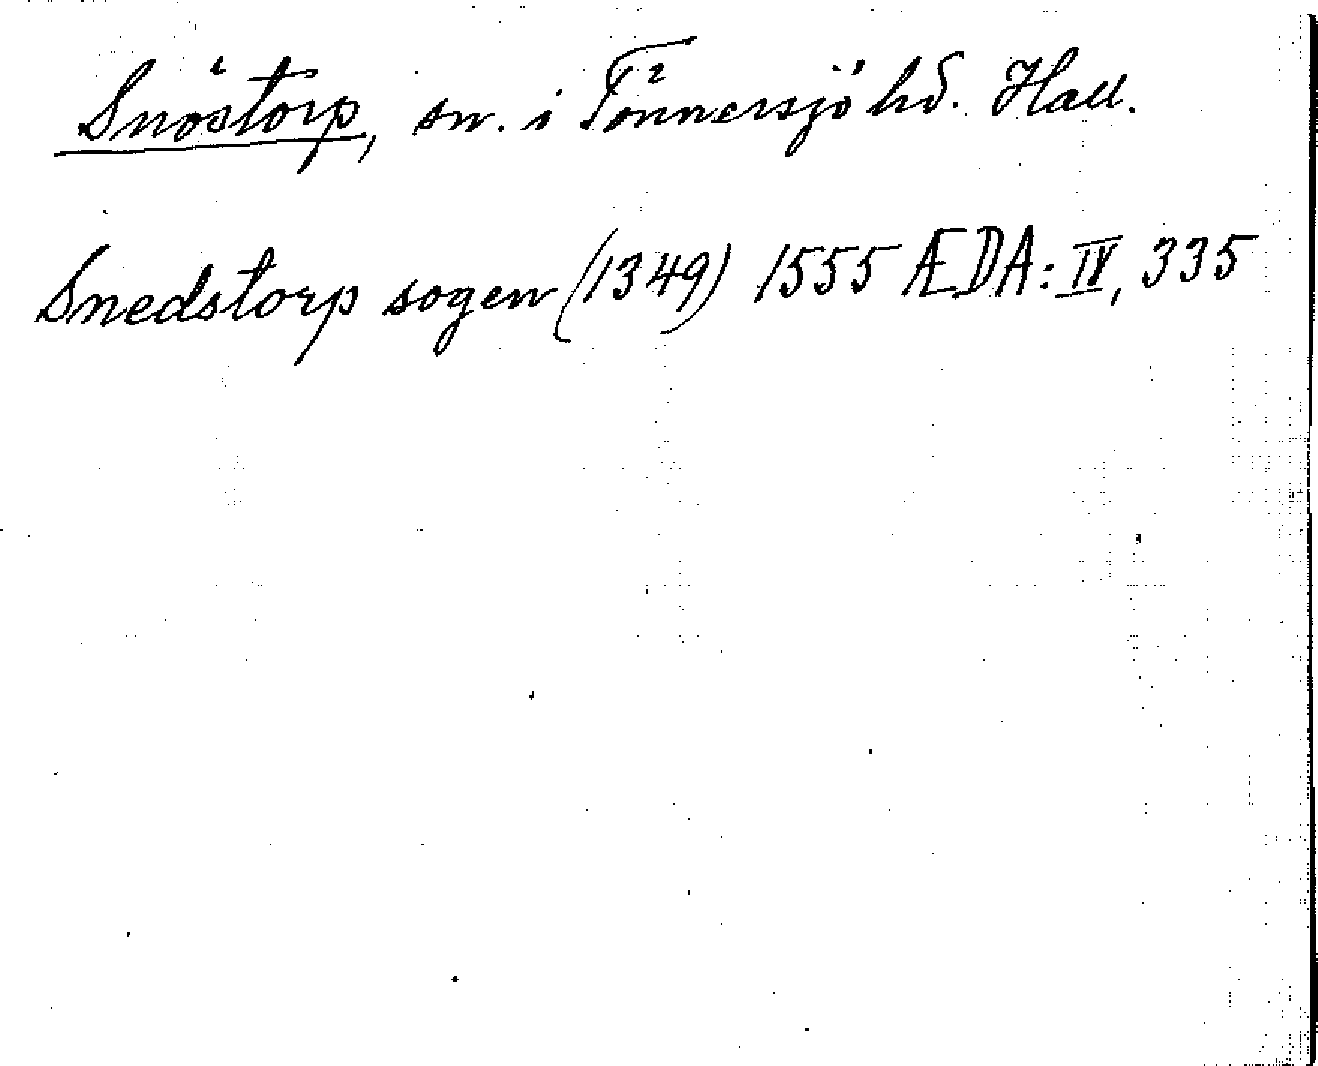 Snöstorp, sn. i Tönnersjö hd. Hall.
Snedstorp sogen (1349) 1555 ÆDA: IV, 335